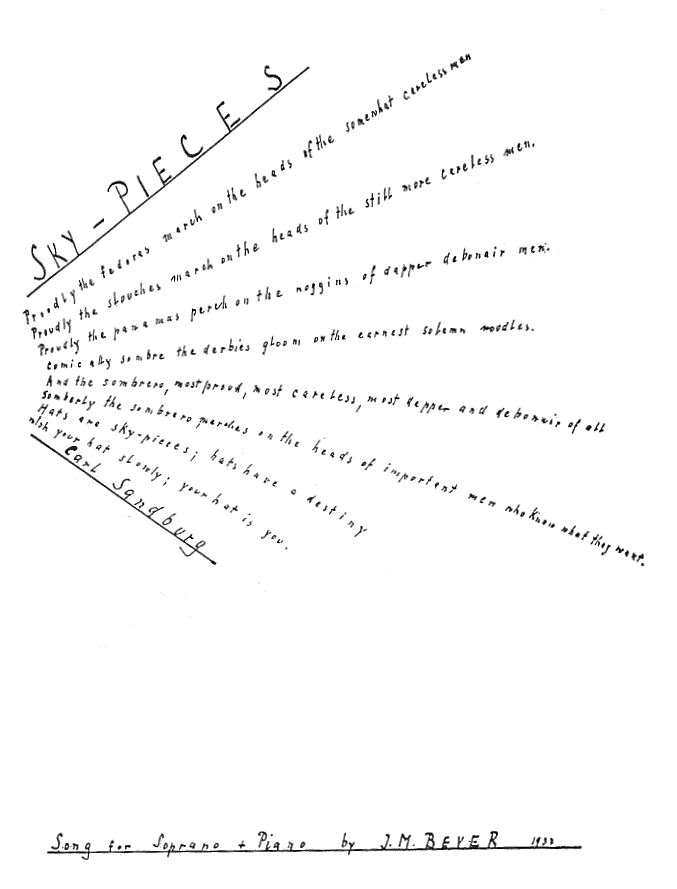 SKY-PIECES
Proudly the fedoras march on the heads of the somewhat careless man
Proudly the slouches march on the heads of the still more careless men.
Proudly the panamas perch on the noggins of dapper debonair men.
Comically sombre the derbies gloom on the earnest solemn noodles.
And the sombrero, most proud, most careless, most dapper and debonair of all
Somberly the sombrero marches on the heads of important men who know what they want.
Hats are sky-pieces; hats have a destiny
wish your hat slowly; your hat is you.
Carl Sandburg
Song for Soprano + Piano by J.M. BEYER